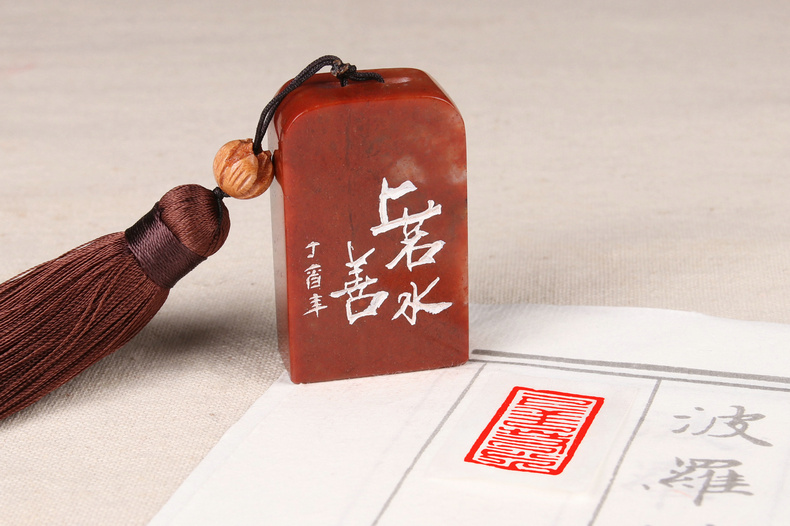 上善若水
丁酉年
波羅